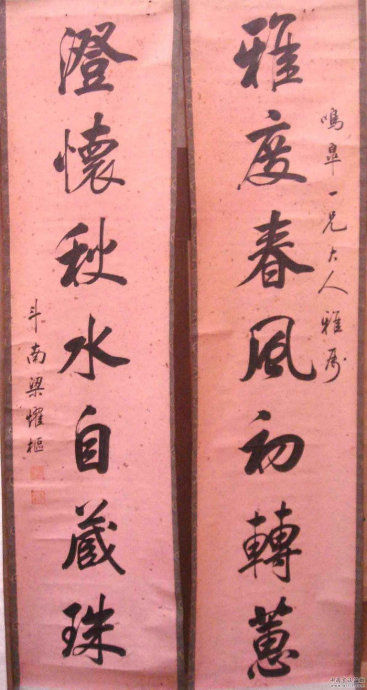 鳴皋一兄大人雅屬
雅度春風初轉蕙
澄懷秋水自藏珠
斗南梁燿樞